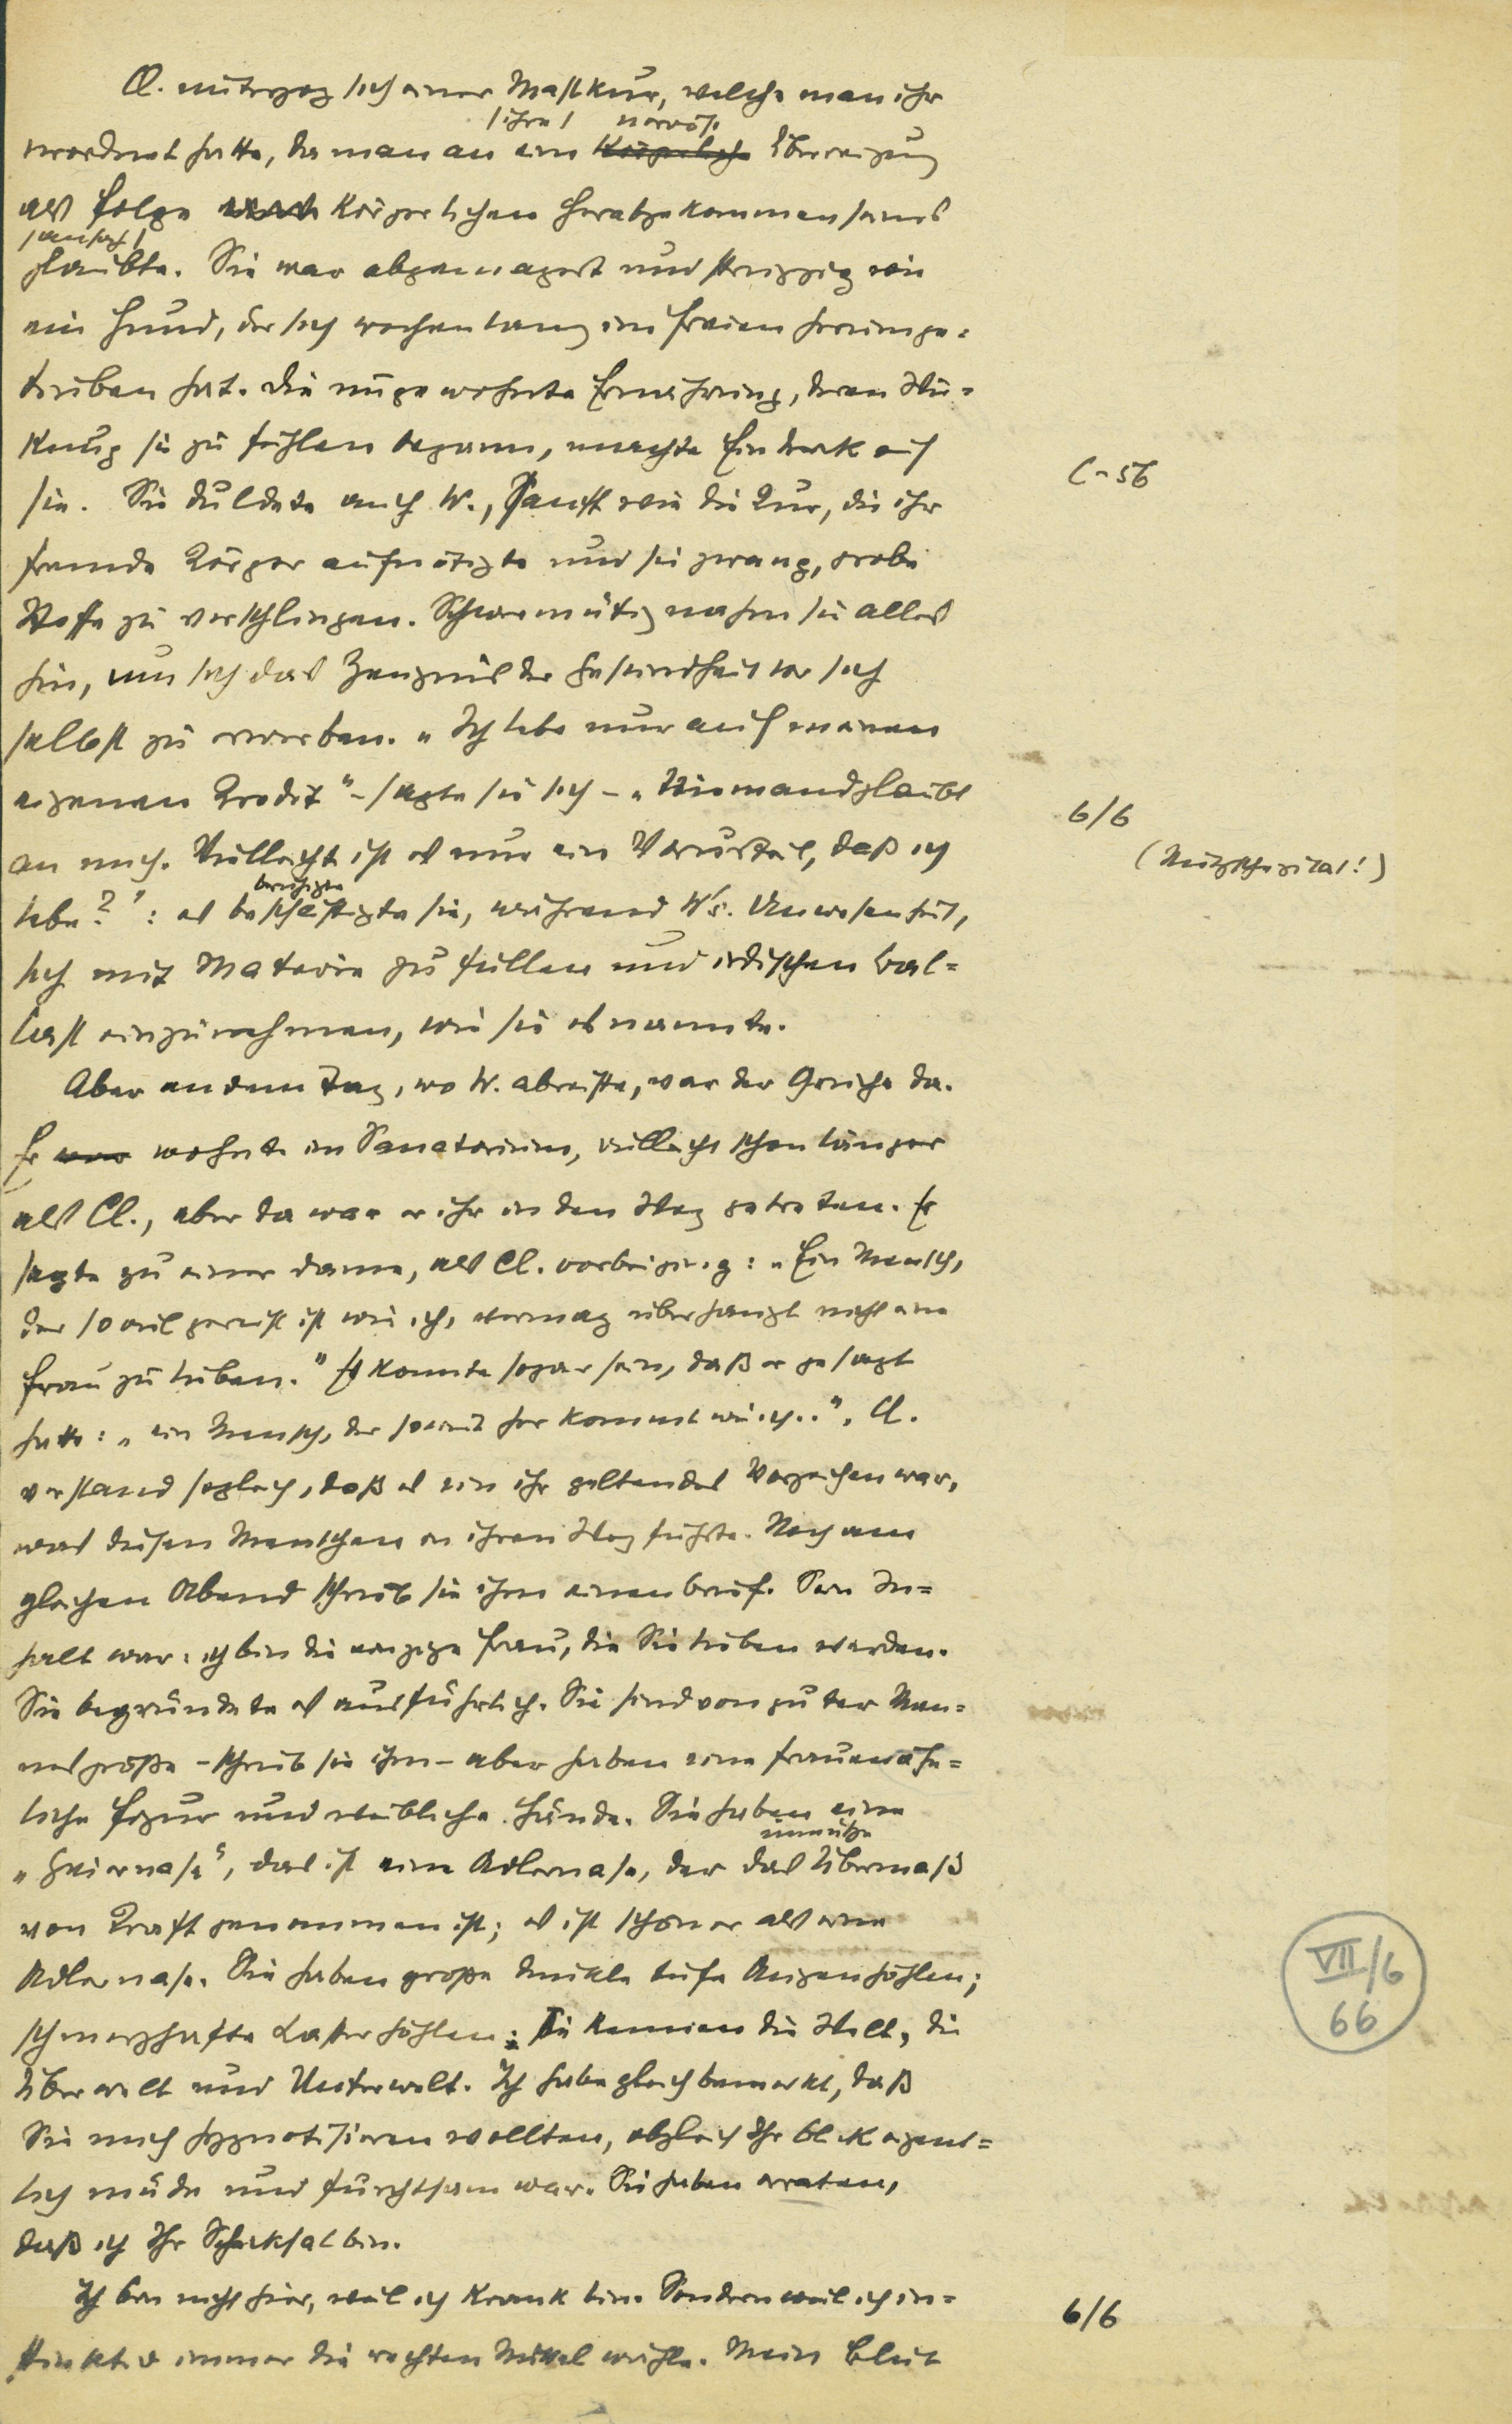 Cl. unterzog sich einer Mastkur, welche man ihr
/ihre/ nervöse
verordnet hatte, da man an eine körperliche Überreizung
als Folge körperlichen Herabgekommenseins
/einfach/
glaubte. Sie war abgemagert und struppig wie
ein Hund, der sich wochenlang im Freien herumge=
trieben hat. Die ungewohnte Ernährung, deren Wir=
kung sie zu fühlen begann, machte Eindruck auf
sie. Sie duldete auch W., sanft wie die Kur, die ihr
C-56
fremde Körper aufnötigte und sie zwang, grobe
Stoffe zu verschlingen. Schwermütig nahm sie alles
hin, um sich das Zeugnis der Gesundheit vor sich
selbst zu erwerben. „Ich lebe nur auf meinen
eigenen Kredit" – sagte sie sich – „Niemand glaubt
6/6
an mich. Vielleicht ist es nur ein Vorurteil, daß ich
(Nietzschezitat!)
beruhigte
lebe?": es beschäftigte sie, während W's. Anwesenheit,
sich mit Materie zu füllen und irdischen Bal=
last einzunehmen, wie sie es nannte.
Aber an dem Tag, wo W. abreiste, war der Grieche da.
Er war wohnte im Sanatorium, vielleicht schon länger
als Cl., aber da war er ihr in den Weg getreten. Er
sagte zu einer Dame, als Cl. vorbeiging: „Ein Mensch,
der so viel gereist ist wie ich, vermag überhaupt nicht eine
Frau zu lieben." Es konnte sogar sein, daß er gesagt
hatte: „ein Mensch, der so weit her kommt wie ich..". Cl.
verstand sogleich, daß es ein ihr geltendes Vorzeichen war,
was diesen Menschen in ihren Weg führte. Noch am
gleichen Abend schrieb sie ihm einen Brief. Sein In=
halt war: ich bin die einzige Frau, die Sie lieben werden.
Sie begründete es ausführlich. Sie sind von guter Man=
nesgröße – schrieb sie ihm – aber haben eine frauenähn=
liche Figur und weibliche Hände. Sie haben eine
unnütze
„Geiernase", das ist eine Adlernase, der das Übermaß
von Kraft genommen ist; es ist schöner als eine
Adlernase. Sie haben große dunkle tiefe Augenhöhlen;
schmerzhafte Lasterhöhlen; Sie kennen die Welt, die
VII/6
66
Überwelt und Unterwelt. Ich habe gleich bemerkt, daß
Sie mich hypnotisieren wollten, obgleich Ihr Blick eigent=
lich müde und furchtsam war. Sie haben erraten,
daß ich Ihr Schicksal bin.
Ich bin nicht hier, weil ich krank bin. Sondern weil ich in=
6/6
stinktiv immer die rechten Mittel wähle. Mein Blut